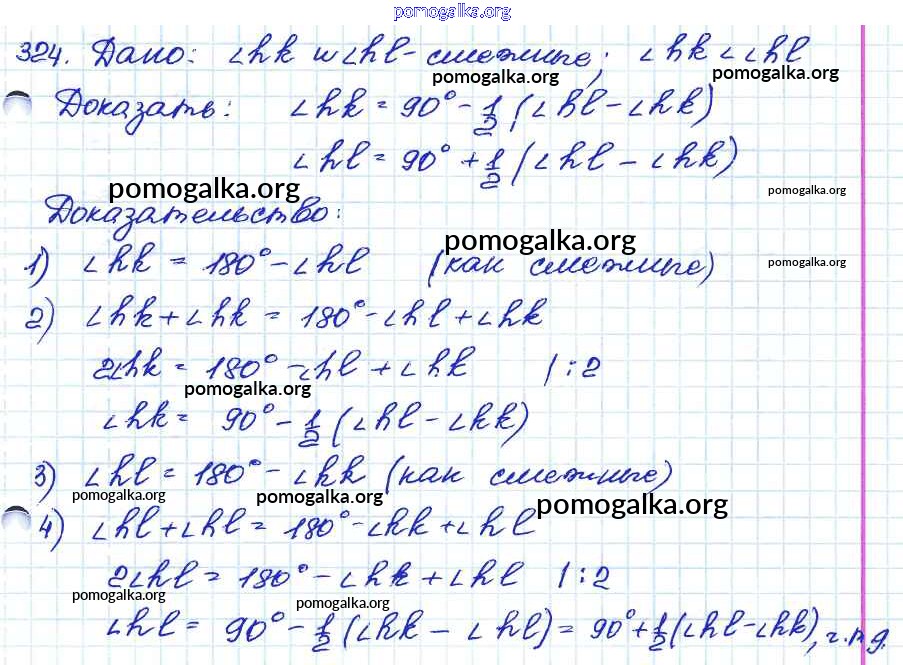 pomogalka.org
324. Дано: ∠hk и ∠hl - смежные; ∠hk < ∠hl
pomogalka.org pomogalka.org
Доказать: ∠hk = 90° - 1/2 (∠hl - ∠hk)
∠hl = 90° + 1/2 (∠hl - ∠hk)
pomogalka.org pomogalka.org
Доказательство:
pomogalka.org
1) ∠hk = 180° - ∠hl (как смежные)
pomogalka.org
2) ∠hk + ∠hk = 180° - ∠hl + ∠hk
2∠hk = 180° - ∠hl + ∠hk | : 2
pomogalka.org
∠hk = 90° - 1/2 (∠hl - ∠hk)
3) ∠hl = 180° - ∠hk (как смежные)
pomogalka.org pomogalka.org pomogalka.org
4) ∠hl + ∠hl = 180° - ∠hk + ∠hl
2∠hl = 180° - ∠hk + ∠hl | : 2
pomogalka.org pomogalka.org
∠hl = 90° - 1/2 (∠hk - ∠hl) = 90° + 1/2 (∠hl - ∠hk), ч.т.д.